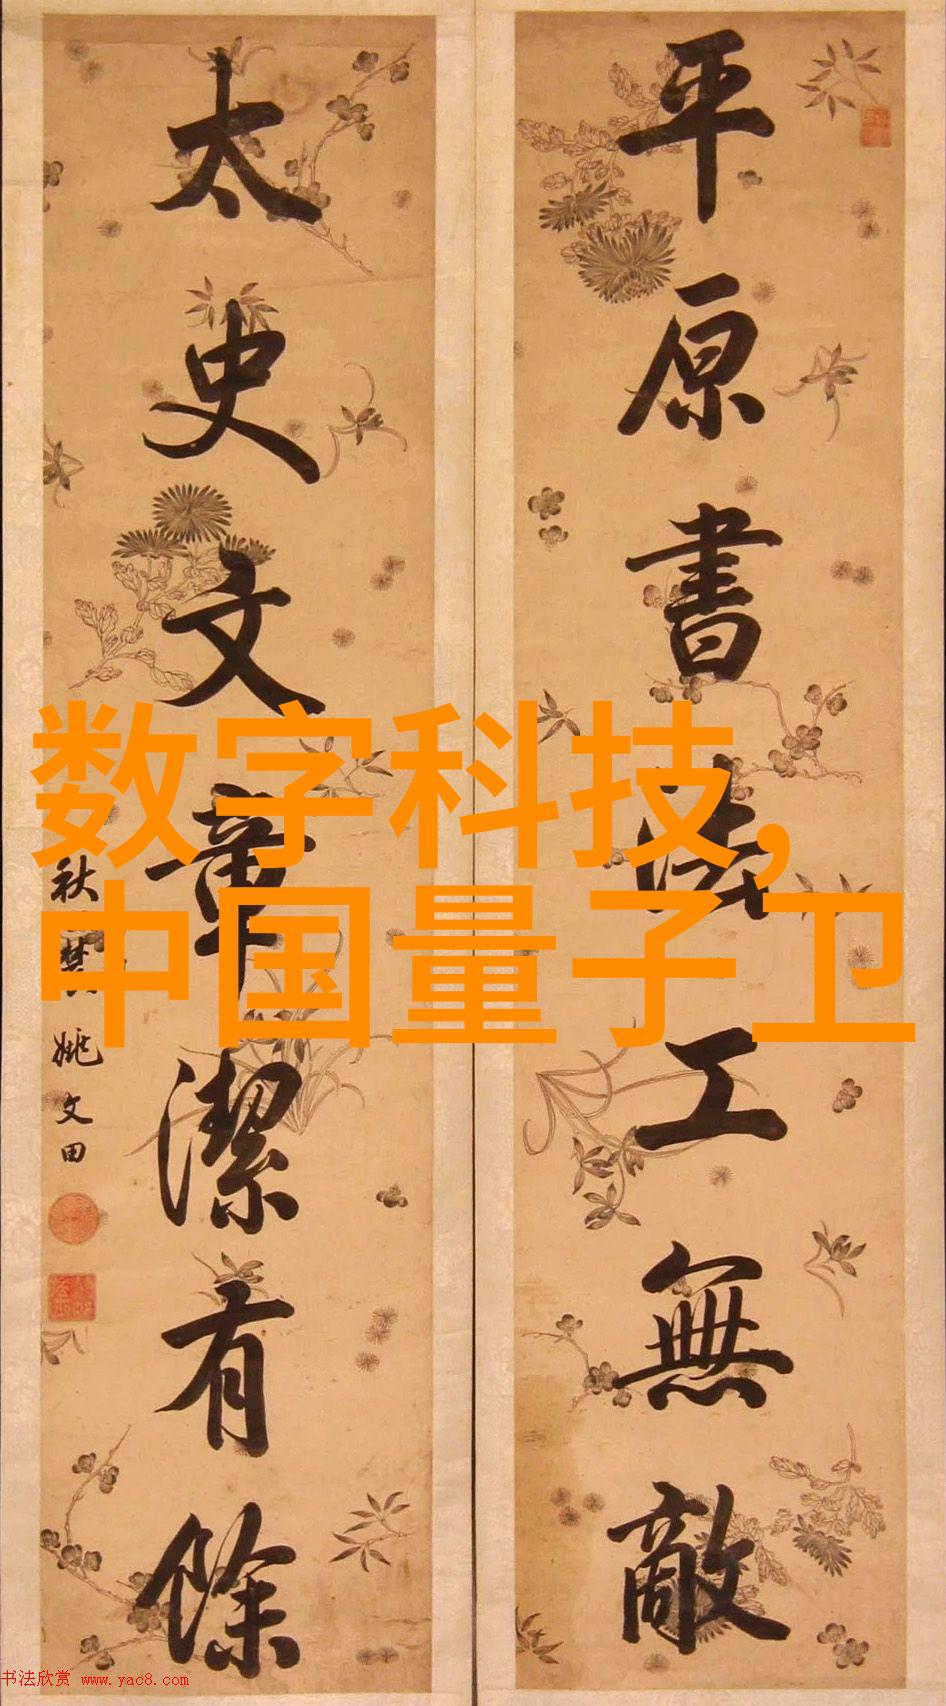 平原書法工無敵
太史文章潔有餘
秋
姚文田
数字科技,
中国量子卫
书法欣赏 www.yac8.com